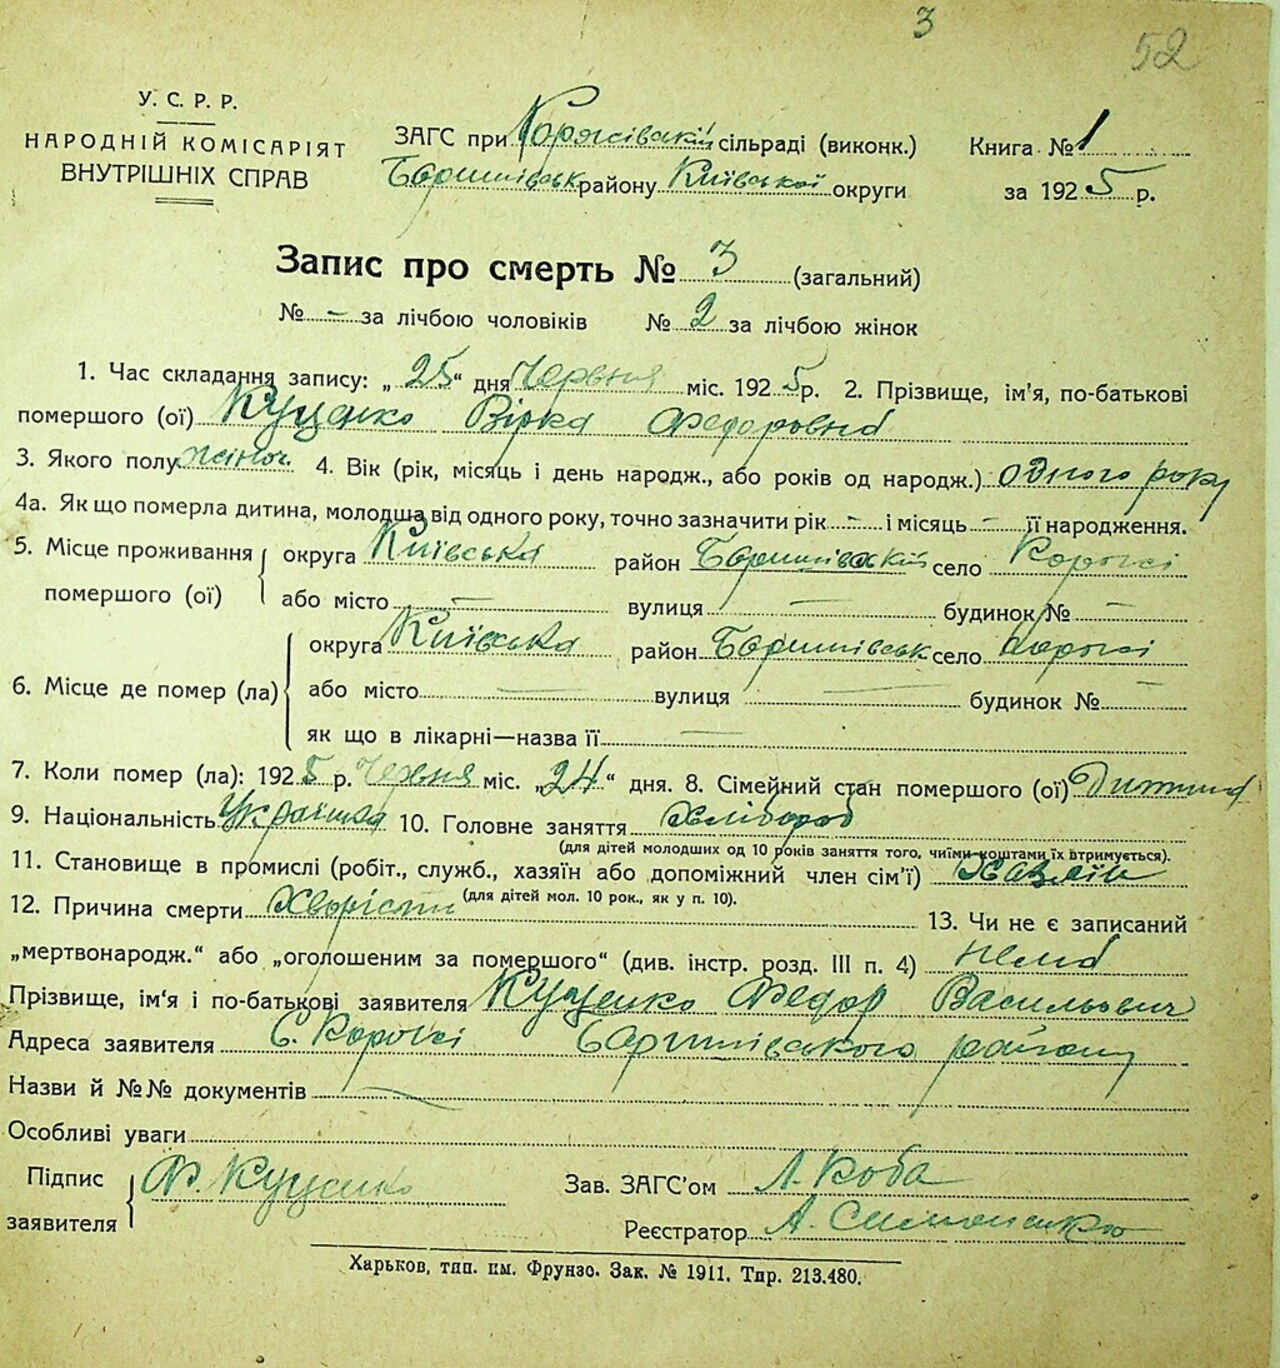 3
52
У. С. Р. Р.
НАРОДНІЙ КОМІСАРІЯТ
ВНУТРІШНІХ СПРАВ
ЗАГС при Коржівській сільраді (виконк.)
Баришівськ району Київської округи
Книга №1
за 1925 р.
Запис про смерть № 3 (загальний)
№ - за лічбою чоловіків № 2 за лічбою жінок
1. Час складання запису: „25“ дня Червня міс. 1925р. 2. Прізвище, ім'я, по-батькові
помершого (ої) Куценко Вірка Федоровна
3. Якого полу жіноч. 4. Вік (рік, місяць і день народж., або років од народж.) одного року
4а. Як що померла дитина, молодша від одного року, точно зазначити рік - і місяць - її народження.
5. Місце проживання помершого (ої) округа Київська район Баришівский село Коржі
або місто — вулиця — будинок № —
6. Місце де помер (ла) округа Київська район Баришівськ село Коржі
або місто — вулиця — будинок № —
як що в лікарні—назва її —
7. Коли помер (ла): 1925 р. Червня міс. „24“ дня. 8. Сімейний стан помершого (ої) Дитина
9. Національність Українка 10. Головне заняття Хлібороб
(для дітей молодших од 10 років заняття того, чиїми коштами їх втримується).
11. Становище в промислі (робіт., служб., хазяїн або допоміжний член сім'ї) Хазяїн
(для дітей мол. 10 рок., як у п. 10).
12. Причина смерти Хворість 13. Чи не є записаний
„мертвонародж.“ або „оголошеним за помершого“ (див. інстр. розд. III п. 4) нема
Прізвище, ім'я і по-батькові заявителя Куценко Федор Васильович
Адреса заявителя С. Коржі Баришівського району
Назви й №№ документів —
Особливі уваги
Підпис заявителя Ф. Куценко
Зав. ЗАГС'ом Л. Коба
Реєстратор А. Симоненко
Харьков, тип. им. Фрунзе. Зак. № 1911. Тир. 213.480.